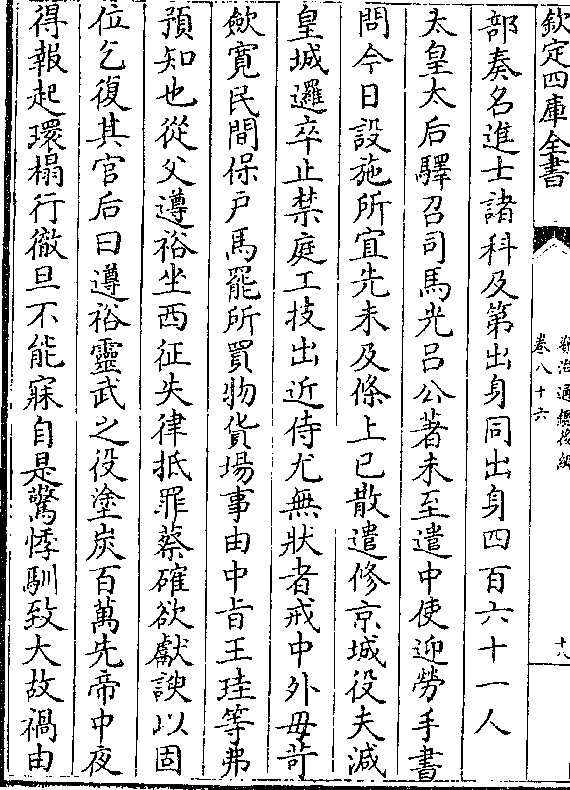 欽定四庫全書
資治通鑑後編
卷八十六
十八
部奏名進士諸科及第出身同出身四百六十一人
太皇太后驛召司馬光呂公著未至遣中使迎勞手書
問今日設施所宜先未及條上已散遣修京城役夫減
皇城邏卒止禁庭工技出近侍尤無狀者戒中外毋苛
歛寛民間保戶馬罷所買物貨場事由中旨王珪等弗
預知也從父遵裕坐西征失律抵罪蔡確欲獻諛以固
位乞復其官后曰遵裕靈武之役塗炭百萬先帝中夜
得報起環榻行徹旦不能寐自是驚悸馴致大故禍由